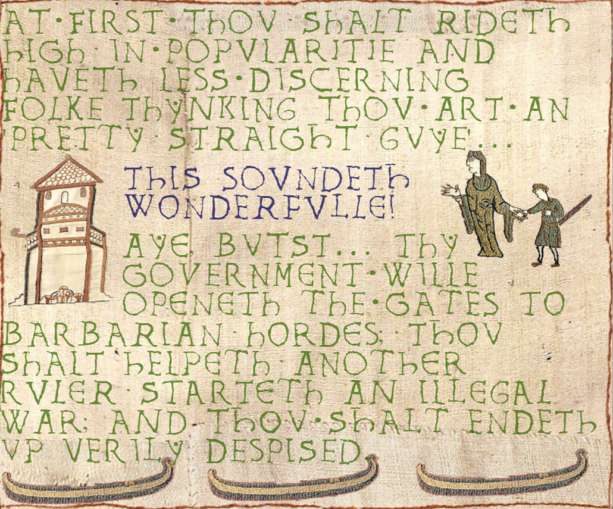 AT·FIRST·THOV SHALT RIDETH
HIGH IN·POPVLARITIE AND
HAVETH LESS·DISCERNING
FOLKE THYNKING THOV·ART·AN
PRETTY STRAIGHT GVYE...
THIS SOVNDETH
WONDERFVLLE!
AYE, BVTST... THY
GOVERNMENT·WILLE
OPENETH THE·GATES TO
BARBARIAN HORDES; THOV
SHALT HELPETH ANOTHER
RVLER STARTETH AN ILLEGAL
WAR; AND THOV·SHALT ENDETH
VP VERILY DESPISED